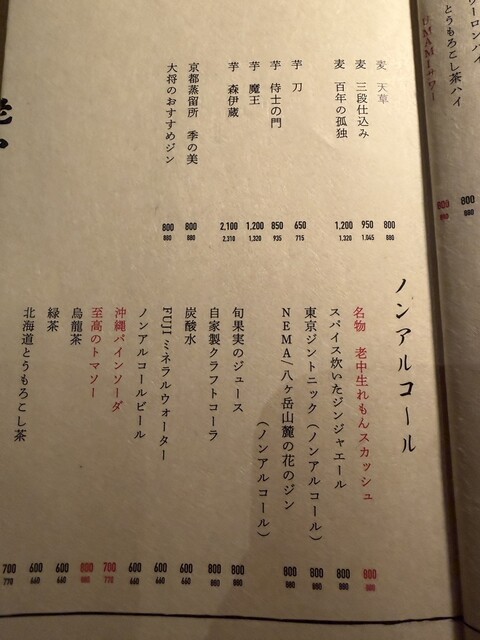 ーロンハイ
とうもろこし茶ハイ
800
880
800
880
麦 天草
800
880
麦 三段仕込み
950
1,045
麦 百年の孤独
1,200
1,320
芋 刀
650
715
芋 侍士の門
850
935
芋 魔王
1,200
1,320
芋 森伊蔵
2,100
2,310
京都蒸留所 季の美
800
880
大将のおすすめジン
800
880
ノンアルコール
名物 老中生れもんスカッシュ
800
880
スパイス炊いたジンジャエール
800
880
東京ジントニック(ノンアルコール)
800
880
NEMA/八ヶ岳山麓の花のジン
(ノンアルコール)
800
880
旬果実のジュース
800
880
自家製クラフトコーラ
800
880
炭酸水
600
660
FUJIミネラルウォーター
600
660
ノンアルコールビール
600
660
沖縄パインソーダ
700
770
至高のトマソー
800
880
烏龍茶
600
660
緑茶
600
660
北海道とうもろこし茶
700
770